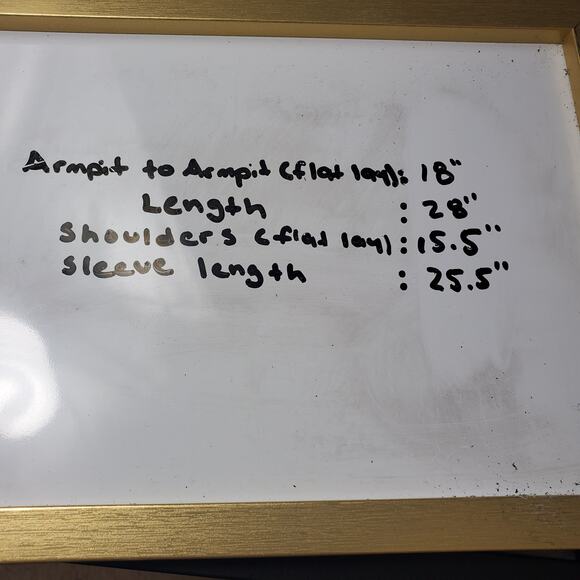 Armpit to Armpit (flat lay): 18"
Length : 28"
Shoulders (flat lay): 15.5"
Sleeve length : 25.5"